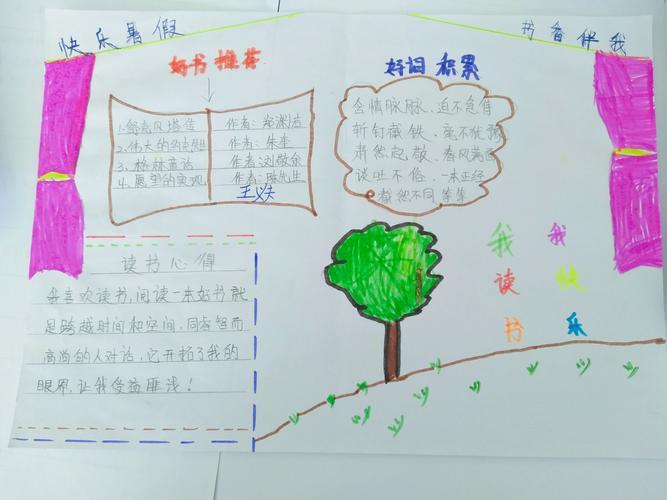 快乐暑假
书香伴我
好书推荐
1.舒克贝塔传 作者:郑渊洁
2.伟大的 作者:朱奎
3.格林童话 作者:刘敬余
4.愿望的实现 作者:陈先生
王义夫
好词积累
含情脉脉、迫不急待
斩钉截铁、毫不犹豫
肃然起敬、春风满面
谈吐不俗、一本正经
截然不同等等
读书心得
我喜欢读书,阅读一本好书就
是跨越时间和空间,同睿智而
高尚的人对话,它开拓了我的
眼界,让我受益匪浅!
我读书
我快乐